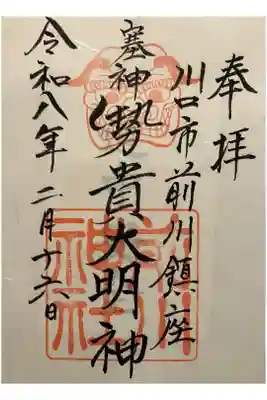 奉拝
川口市前川鎮座
塞神
勢貴大明神
令和八年二月十六日
前川神社